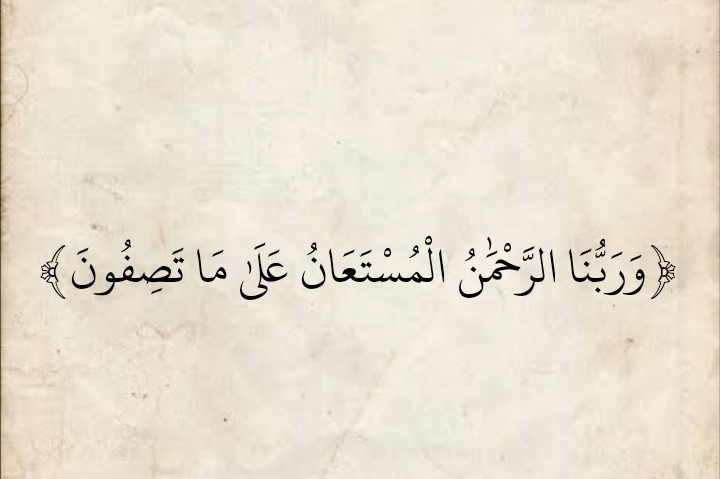 ﴿وَرَبُّنَا الرَّحْمَٰنُ الْمُسْتَعَانُ عَلَىٰ مَا تَصِفُونَ﴾